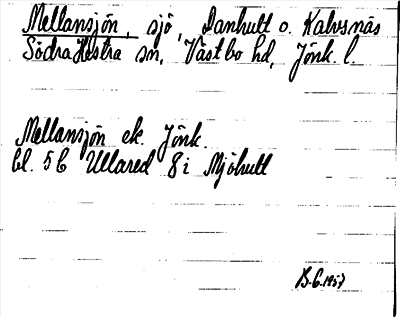 Mellansjön, sjö, Danhult o. Kalvsnäs
Södra Hestra sn, Västbo hd, Jönk. l.
Mellansjön ek. Jönk.
bl. 5 C Ullared 8 i Mjöhult
B.G. 1957